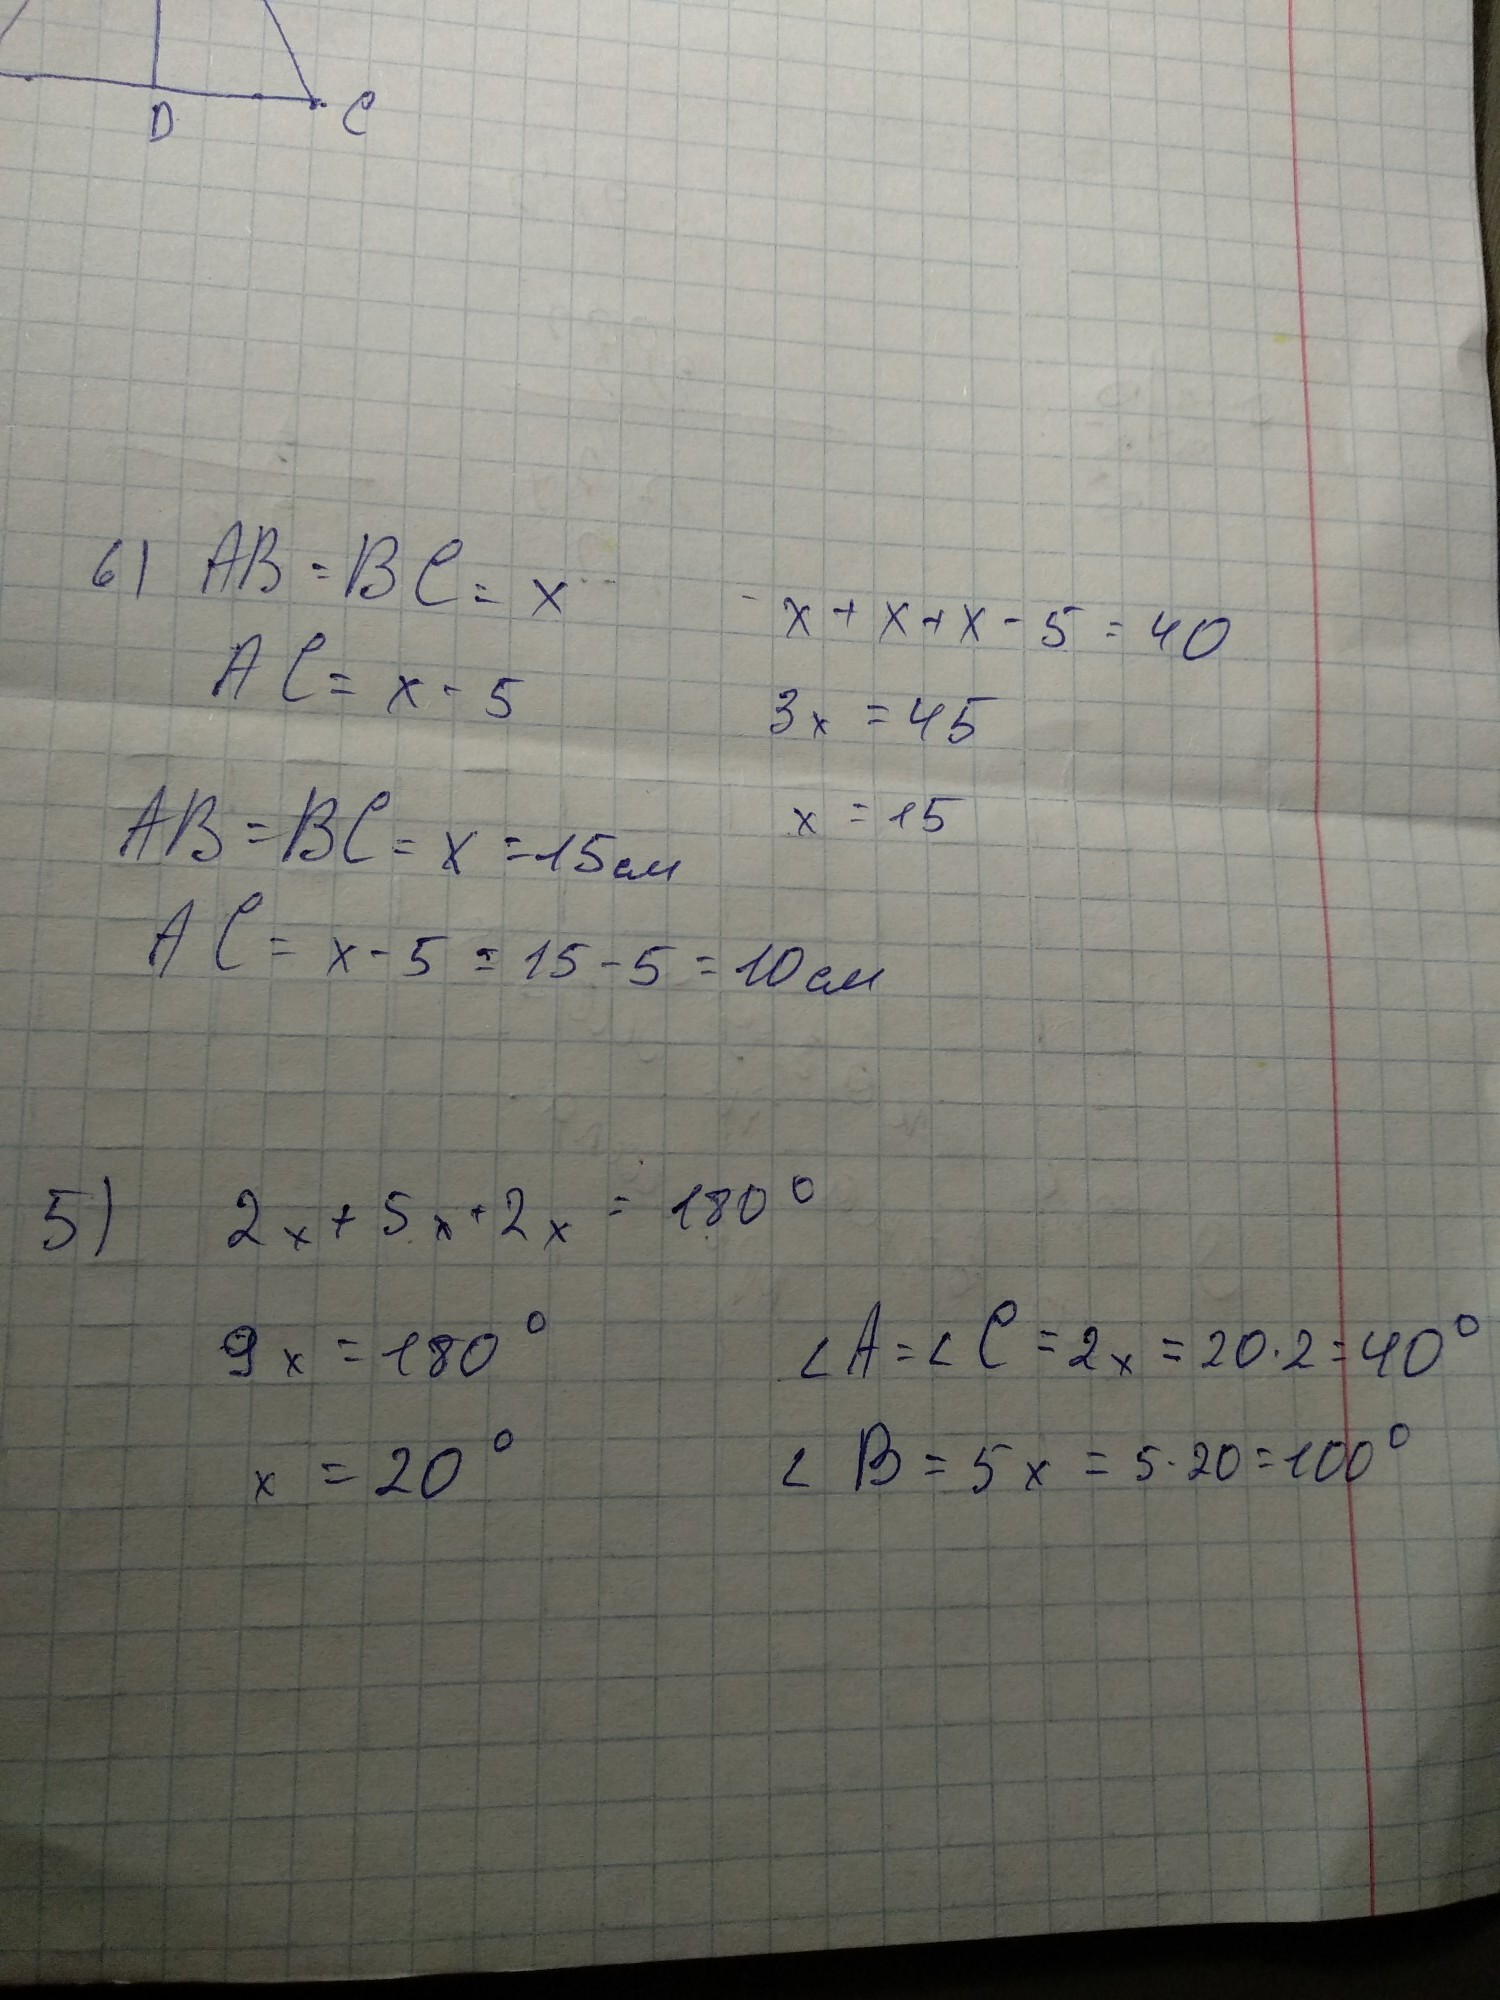 D C
6) AB = BC = x
x + x + x - 5 = 40
AC = x - 5
3x = 45
x = 15
AB = BC = x = 15 см
AC = x - 5 = 15 - 5 = 10 см
5) 2x + 5x + 2x = 180°
9x = 180°
∠A = ∠C = 2x = 20·2 = 40°
x = 20°
∠B = 5x = 5·20 = 100°